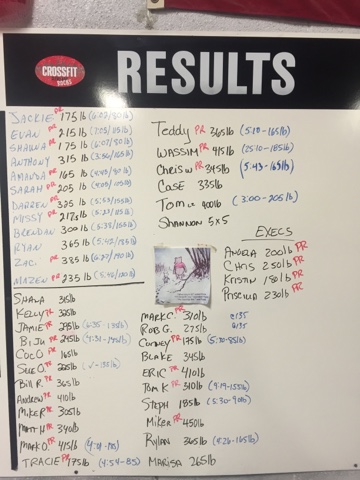 CROSSFIT
RESULTS
JACKIE PR 175 lb (6:07/80lb)
EVAN PR 215 lb
SHAUNA PR 175 lb (6:07/80lb)
ANTHONY 315 lb (3:56/165lb)
AMANDA PR 165 lb
SARAH PR 205 lb
DARREN PR 325 lb
MISSY PR
BRENDAN 300 lb (5:35/165lb)
RYAN 365 lb
ZAC PR 335 lb
MAZEN PR 235 lb
SHANA 315lb
KELLY PR 325lb
JAMIE PR 295lb
BIJU PR 245lb
COCO PR 165lb
SUE O PR 225lb
BILL R. PR 365lb
ANDREW PR 410lb
MIKE R PR 305lb
MATT H PR 340lb
MARK O. PR 415lb
TRACIE PR 175lb (4:54-85)
TEDDY PR 365lb (5:10-165lb)
WASSIM PR 415lb (25:10-185lb)
CHRIS W PR 345lb (5:43-165lb)
CASE 335lb
TOM L 400lb (3:00-205lb)
SHANNON 5x5
EXECS
ANGELA 200lb PR
CHRIS 250lb PR
KRISTIN 180lb PR
PRISCILLA 230lb PR
MARK C. PR 310lb
ROB G. 275lb
CORNEY PR 175lb
BLAKE 345lb
ERIC PR 410lb
TOM K PR 340lb (4:19-155lb)
STEPH 185lb
MIKEA PR 450lb
RYLAN 365lb (4:26-165lb)
MARISA 265lb